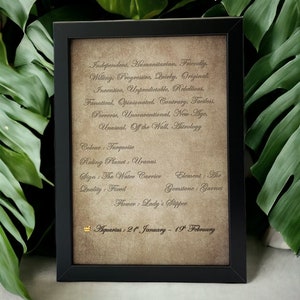 Independent, Humanitarian, Friendly,
Willing, Progressive, Quirky, Original,
Inventive, Unpredictable, Rebellious,
Fanatical, Opinionated, Contrary, Tactless,
Perverse, Unconventional, New-Age,
Unusual, Off the Wall, Astrology
Colour : Turquoise
Ruling Planet : Uranus
Sign : The Water Carrier Element : Air
Quality : Fixed Gemstone : Garnet
Flower : Lady's Slipper
Aquarius : 21st January - 19th February